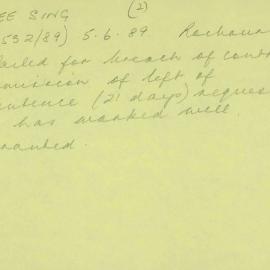 EE SING (2)
532/89) 5.6.89
ailed for breach of cont
mission of left of
ntence (21 days) reques
has worked well.
ranted.